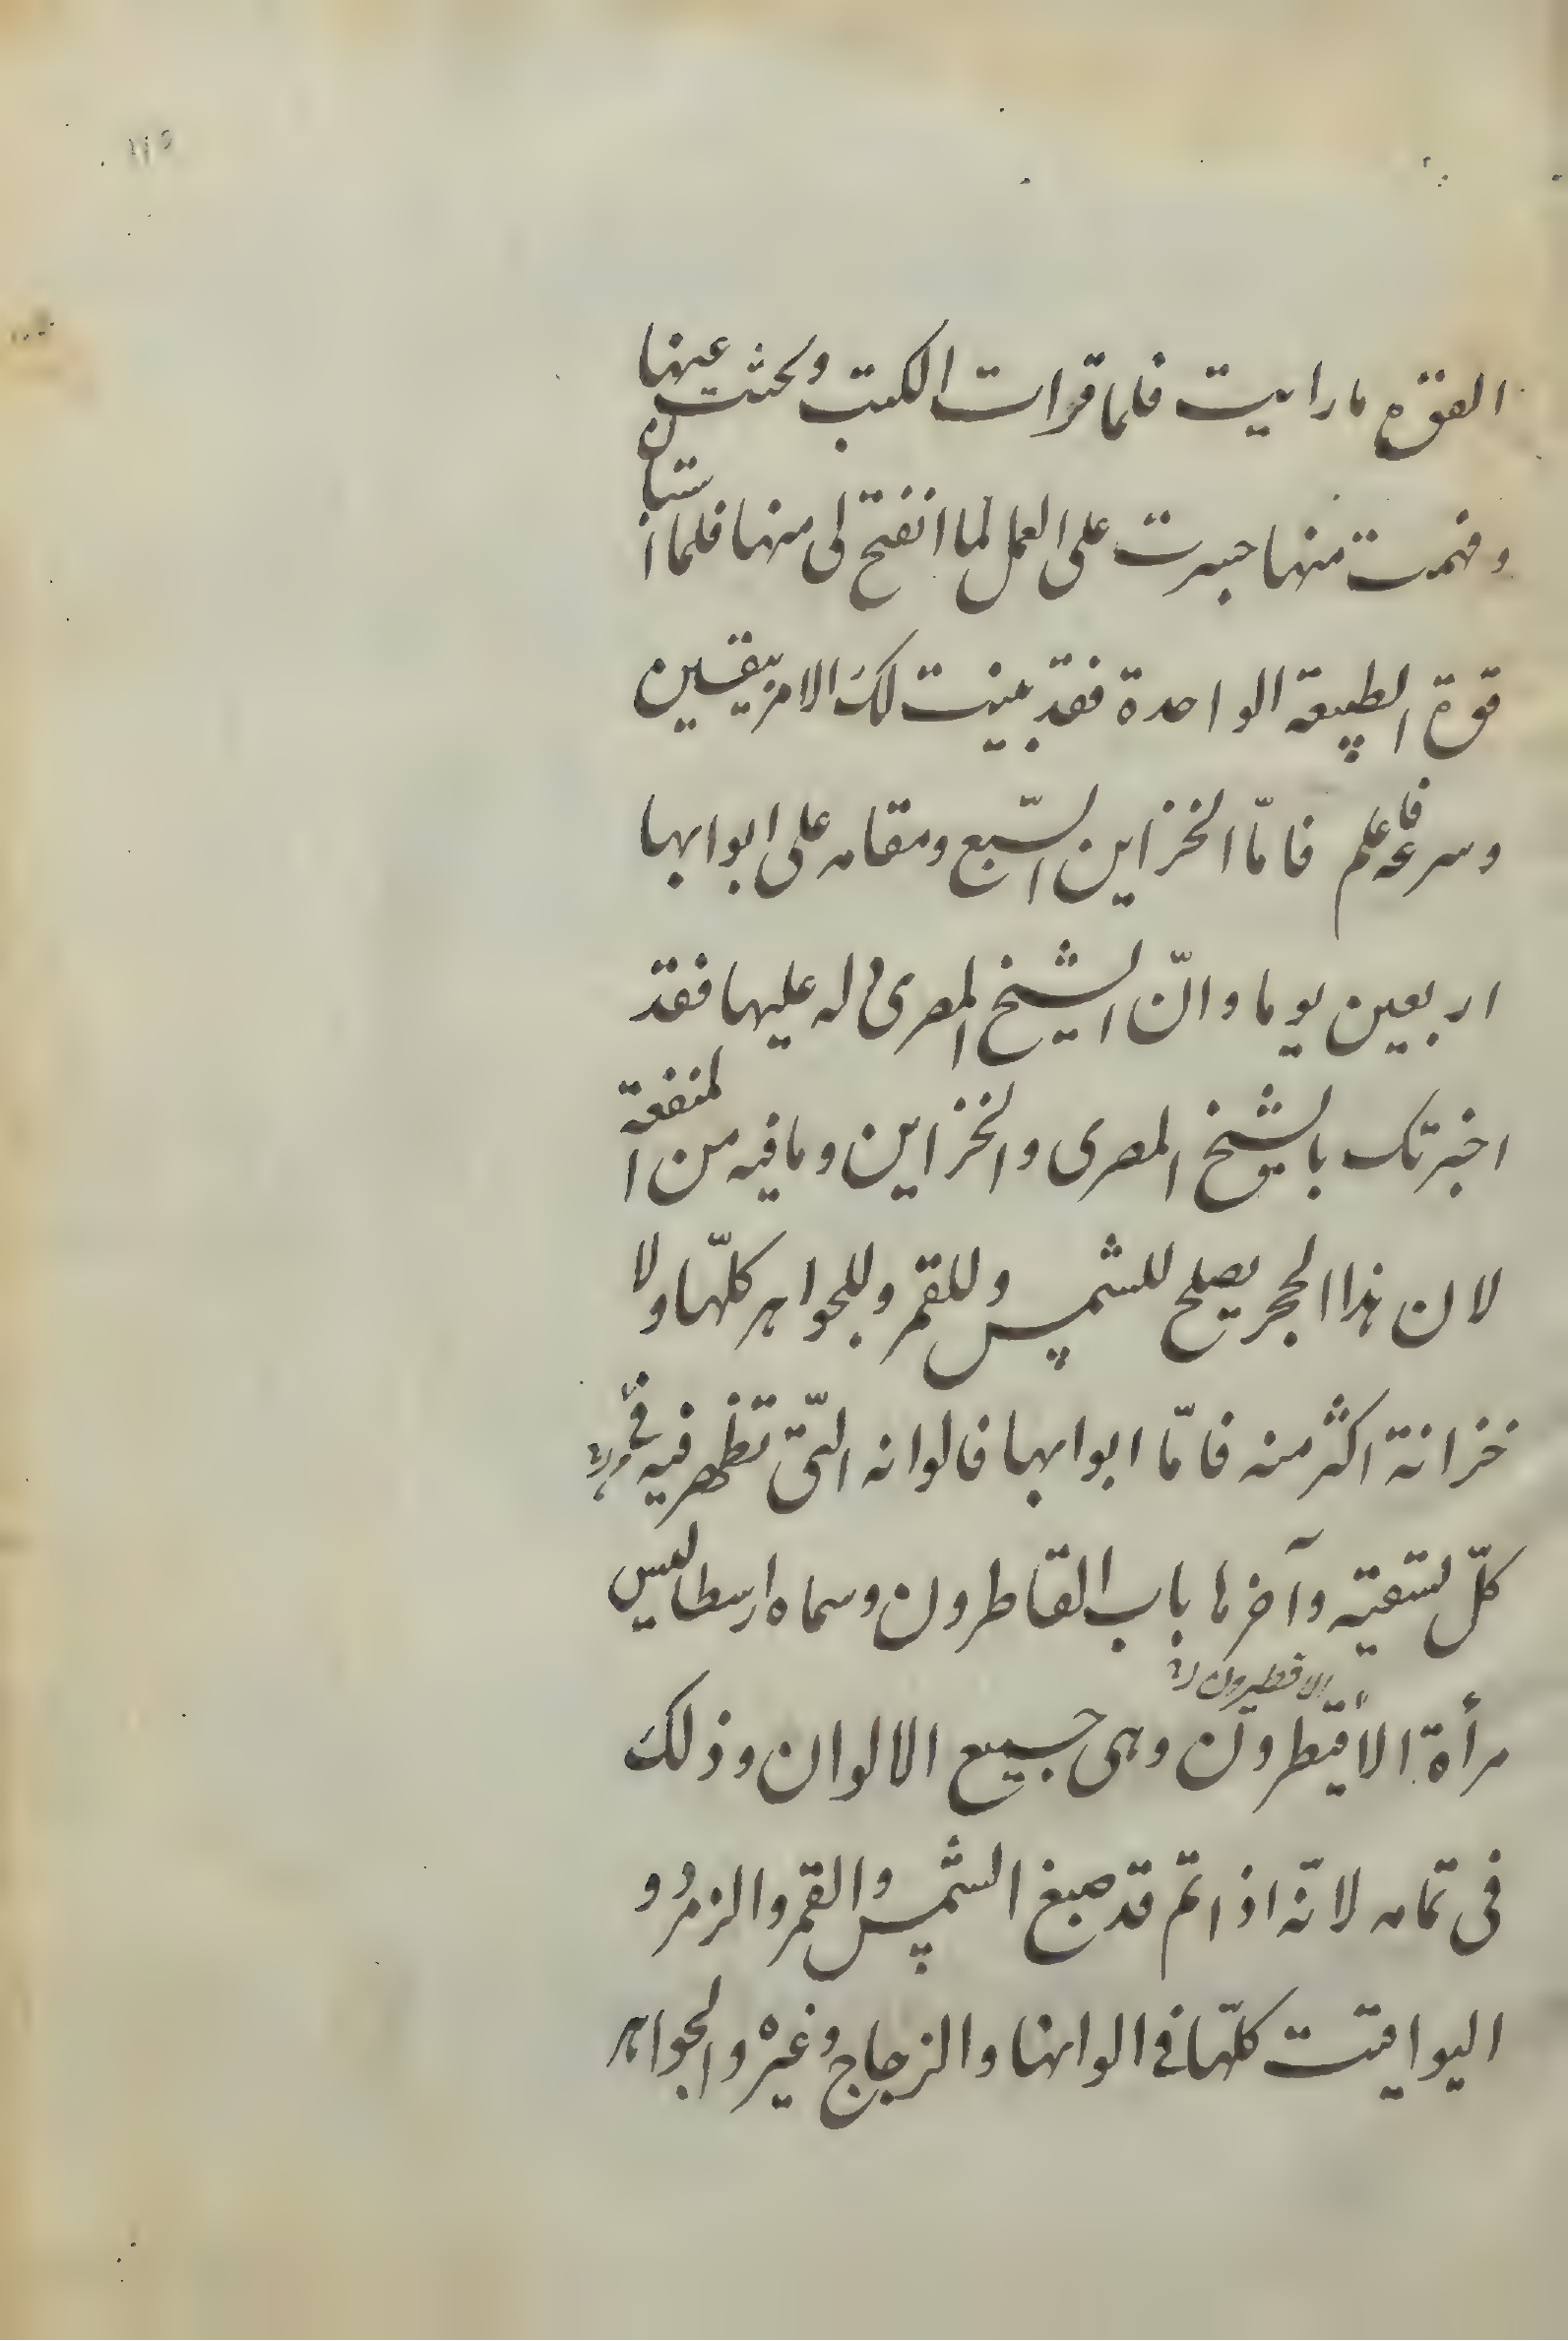 القوة ما رايت فلما قرات الكتب وبحثت عنها
وفهمت منها جسرت على العمل لما انفتح لى منها فلما استبا
قوة الطبيعة الواحدة فقد بينت لك الامر بيقين
وسرعة فاعلم فامّا الخزاين السّبع ومقامه على ابوابها
اربعين يوما وانّ الشيخ المصرى له عليها فقد
اخبرتك بالشيخ المصرى والخزاين وما فيه من المنفعة
لان هذا الحجر يصلح للشمس وللقمر وللجواهر كلّها ولا
خزانة اكثر منه فامّا ابوابها فالوانه التّى تظهر فيه فى
كلّ تسقيته وآخرها باب القاطرون وسماه ارسطاليس
الاقطيرون
مرأة الأقيطرون وهى جميع الالوان وذلك
فى تمامه لانّه اذا تمّ قد صبغ الشّمس والقمر والزمرد و
اليواقيت كلّها فى الوانها والزجاج وغيره والجواهر